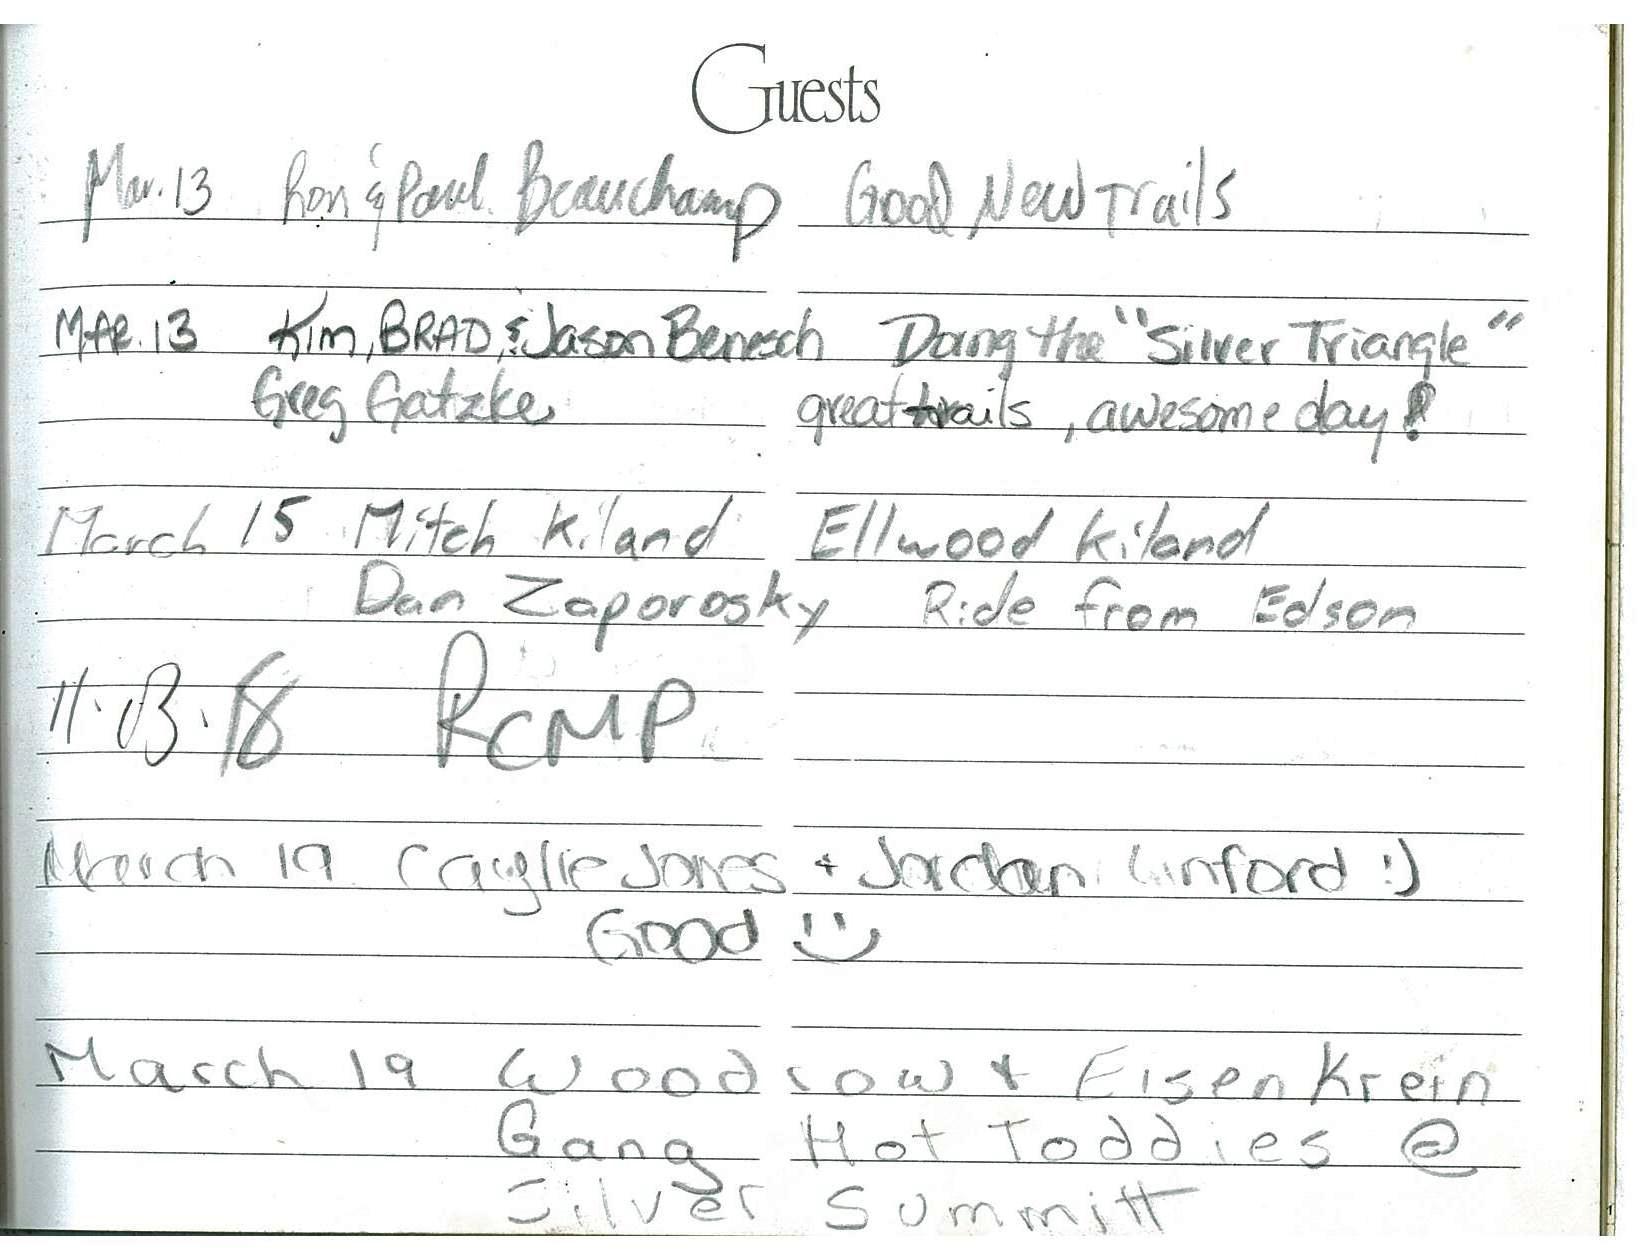 Guests
Mar. 13 Ron & Paul Beauchamp Good New Trails
MAR. 13 Kim, BRAD, & Jason Benesch Doing the "Silver Triangle"
Greg Gatzke great trails, awesome day!
March 15 Mitch Kiland Ellwood Kiland
Dan Zaporosky Ride from Edson
11.03.18 RCMP
March 19 Cayglie Jones + Jordan Linford :)
Good
March 19 Woodrow & Eisen Krein
Gang Hot Toddies @
Silver Summitt